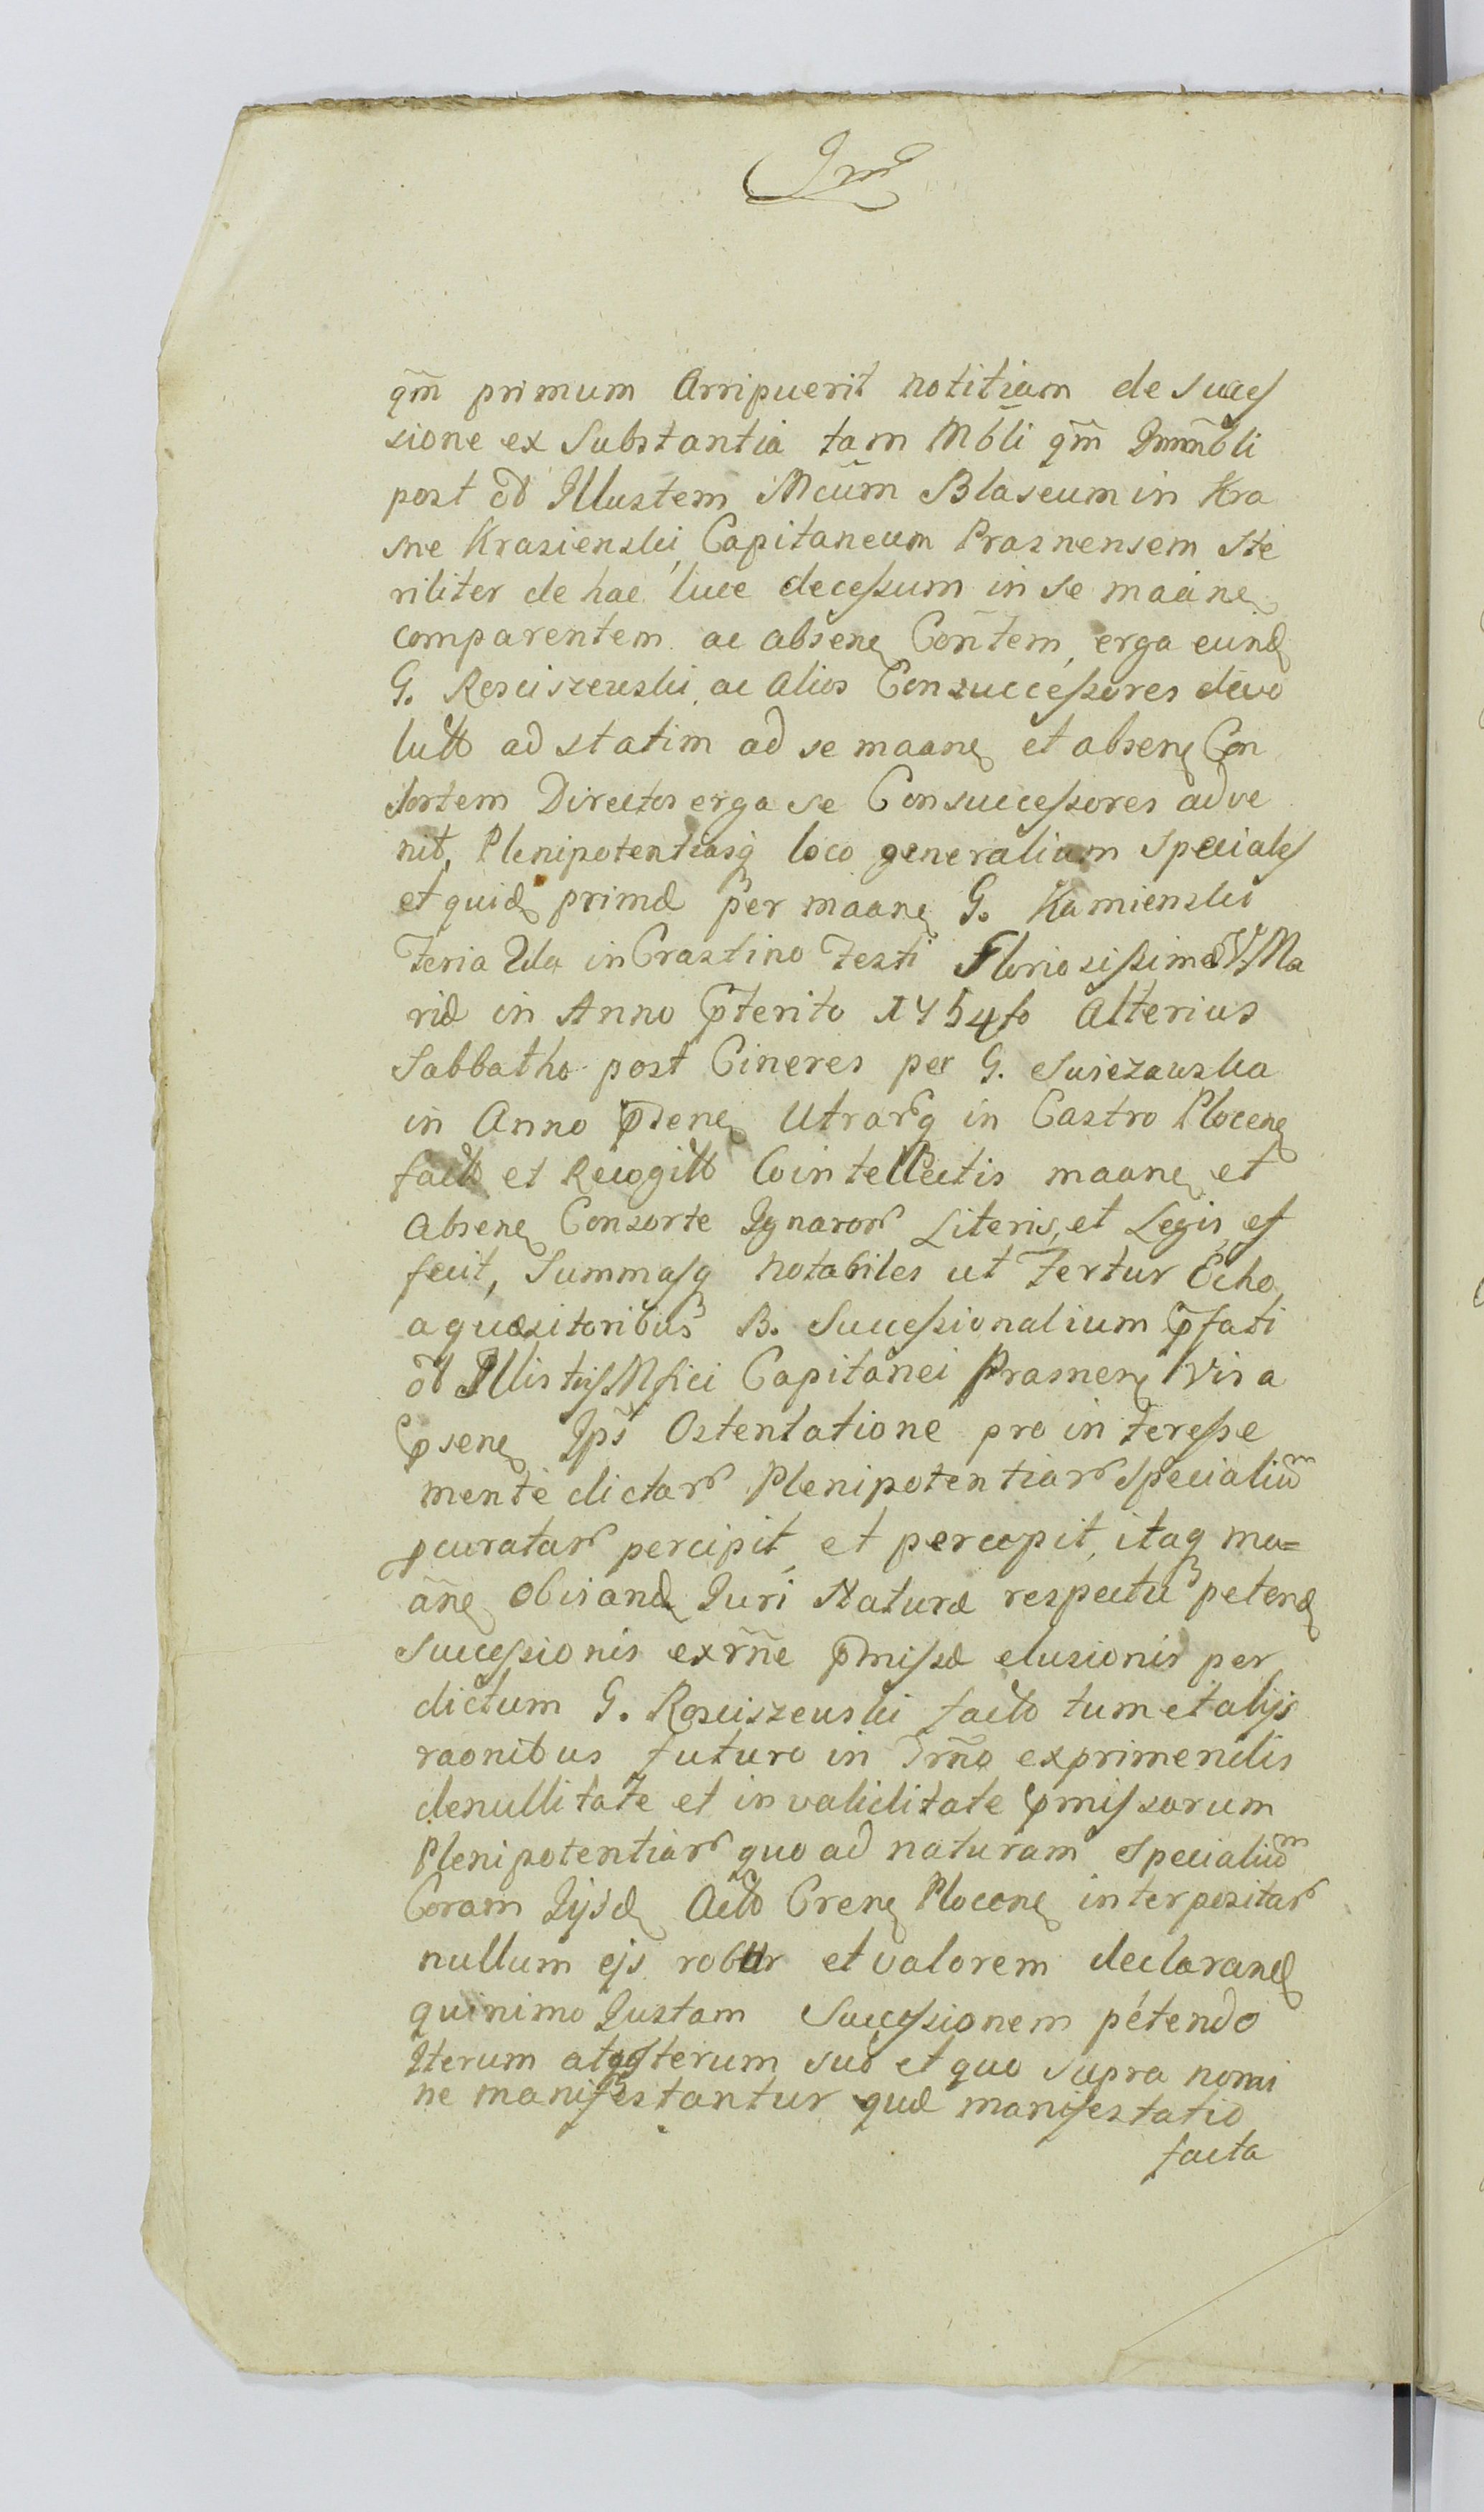 qm̃ primum Arripuerit notitiam de Succes
sione ex Substantia tam Mbli qm̃ Immobli
post ol Illustem Mcum Blaseum in Kra
sne Krasienski, Capitaneum Prasnensem Ste
riliter de hac luce decessum in se maane
comparentem ac absene Con̄tem, erga eund
G. Rosciszewski, ac Alios Consuccessores devo
luto ad statim ad se maane et absene Con
sortem Directos erga se Consuccessores adve
nit, Plenipotentiasq loco generalium Speciales
et quid primæ per maane G. Kamienski
Feria 2da in Crastino Festi Gloriosissimæ V. Ma
riæ in Anno pterito 1754to Alterius
Sabbatho post Cineres per G. Suiezawska
in Anno psene Utrarq in Castro Plocene
facto et Recogito Cointellectis maane et
Absene Consorte Ignaror Literis, et Legis ef
fecit, Summasq notabiles ut Fertur Echo
aquæsitoribus B. Successionalium pfati
ol Illistris Mfici Capitanei Prasnene Vis a
psene Ips Ostentatione pro interesse
mente dictar Plenipotentiar Specialium
pcuratar percipit, et percepit, itaq ma=
āne obisand Juri Naturæ respectu petend
Successionis exrñe pmissæ elusionis per
dictum G. Rosciszewski facto tum et alijs
raonibus futuro in Trñō exprimendis
denullitate et invaliditate pmissorum
Plenipotentiar quo ad naturam Specialium
Coram Ijsd Acto Crene Plocene interpositar
nullum ejs robur et valorem declarand
quinimo Justam Successionem petendo
Iterum atqq Iterum sub et quo supra nomi
ne manifestantur quæ manifestatio
facta